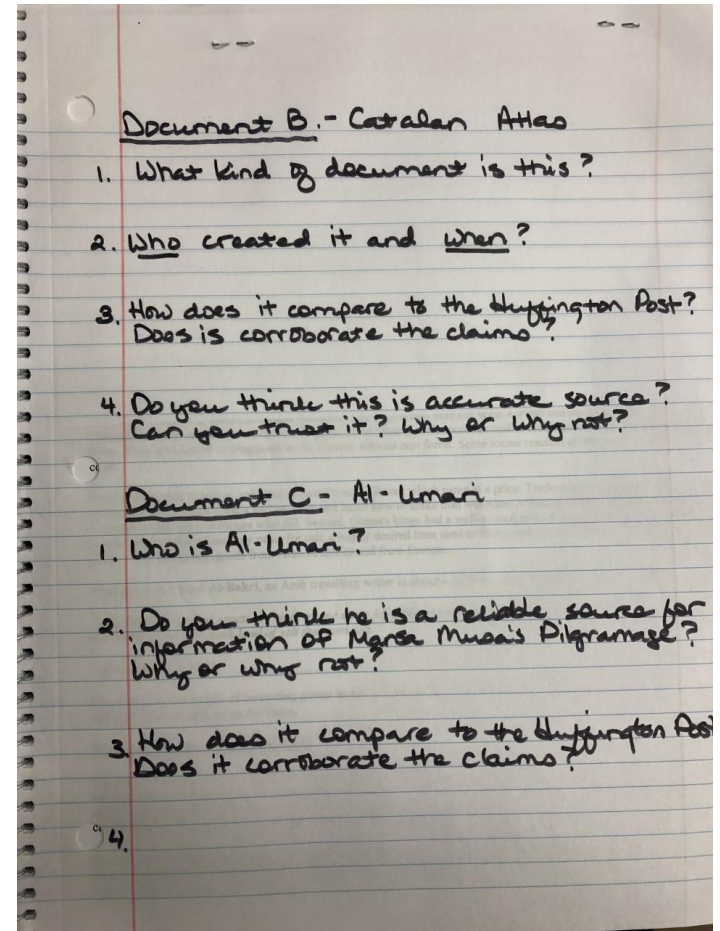 Document B. - Catalan Atlas
1. What kind of document is this?
2. Who created it and when?
3. How does it compare to the Huffington Post?
Does is corroborate the claims?
4. Do you think this is accurate source?
Can you trust it? Why or why not?
Document C - Al-Umari
1. Who is Al-Umari?
2. Do you think he is a reliable source for
information of Mansa Musa's Pilgramage?
Why or why not?
3. How does it compare to the Huffington Post
Does it corroborate the claims?
4.